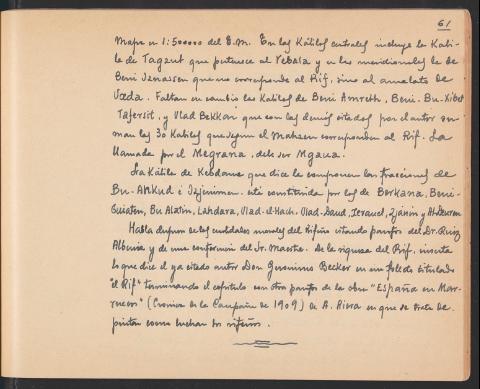 61
Mapa en 1:500000 del E.M. En las Kábilas centrales incluye la Kabi-
la de Tagzut que pertenece al Yebala y en las meridionales la de
Beni Iznassen que no corresponde al Rif, sino al amalato de
Uxda. Faltan en cambio las Kabilas de Beni Amreth, Beni-Bu-Xibet
Tafersit, y Ulad Bekkar que con las demás citadas por el autor su-
man las 30 Kabilas que según el Mahzen corresponden al Rif. La
llamada por él Megrana, debe ser Mgaua.
La Kábila de Kebdana que dice la componen las fracciones de
Bu-Ankud é está constituida por las de Berkana, Beni-
Guiaten, Bu Alatin, Lahdara, Ulad-el-Hach, Ulad-Daud, Zjanin y
Habla despues de las cualidades morales del Rifeño citando parrafos del Dr. Ruiz
Albeniz y de una conferencia del Sr. Maestre. De la riqueza del Rif, inserta
lo que dice el ya citado autor Don Geronimo Becker en un folleto titulado
"El Rif" terminando el capitulo con otro parrafo de la obra "España en Mar-
ruecos" (Cronica de la Campaña de 1909) de A. Riera en que se trata de
pintar como luchan los rifeños.